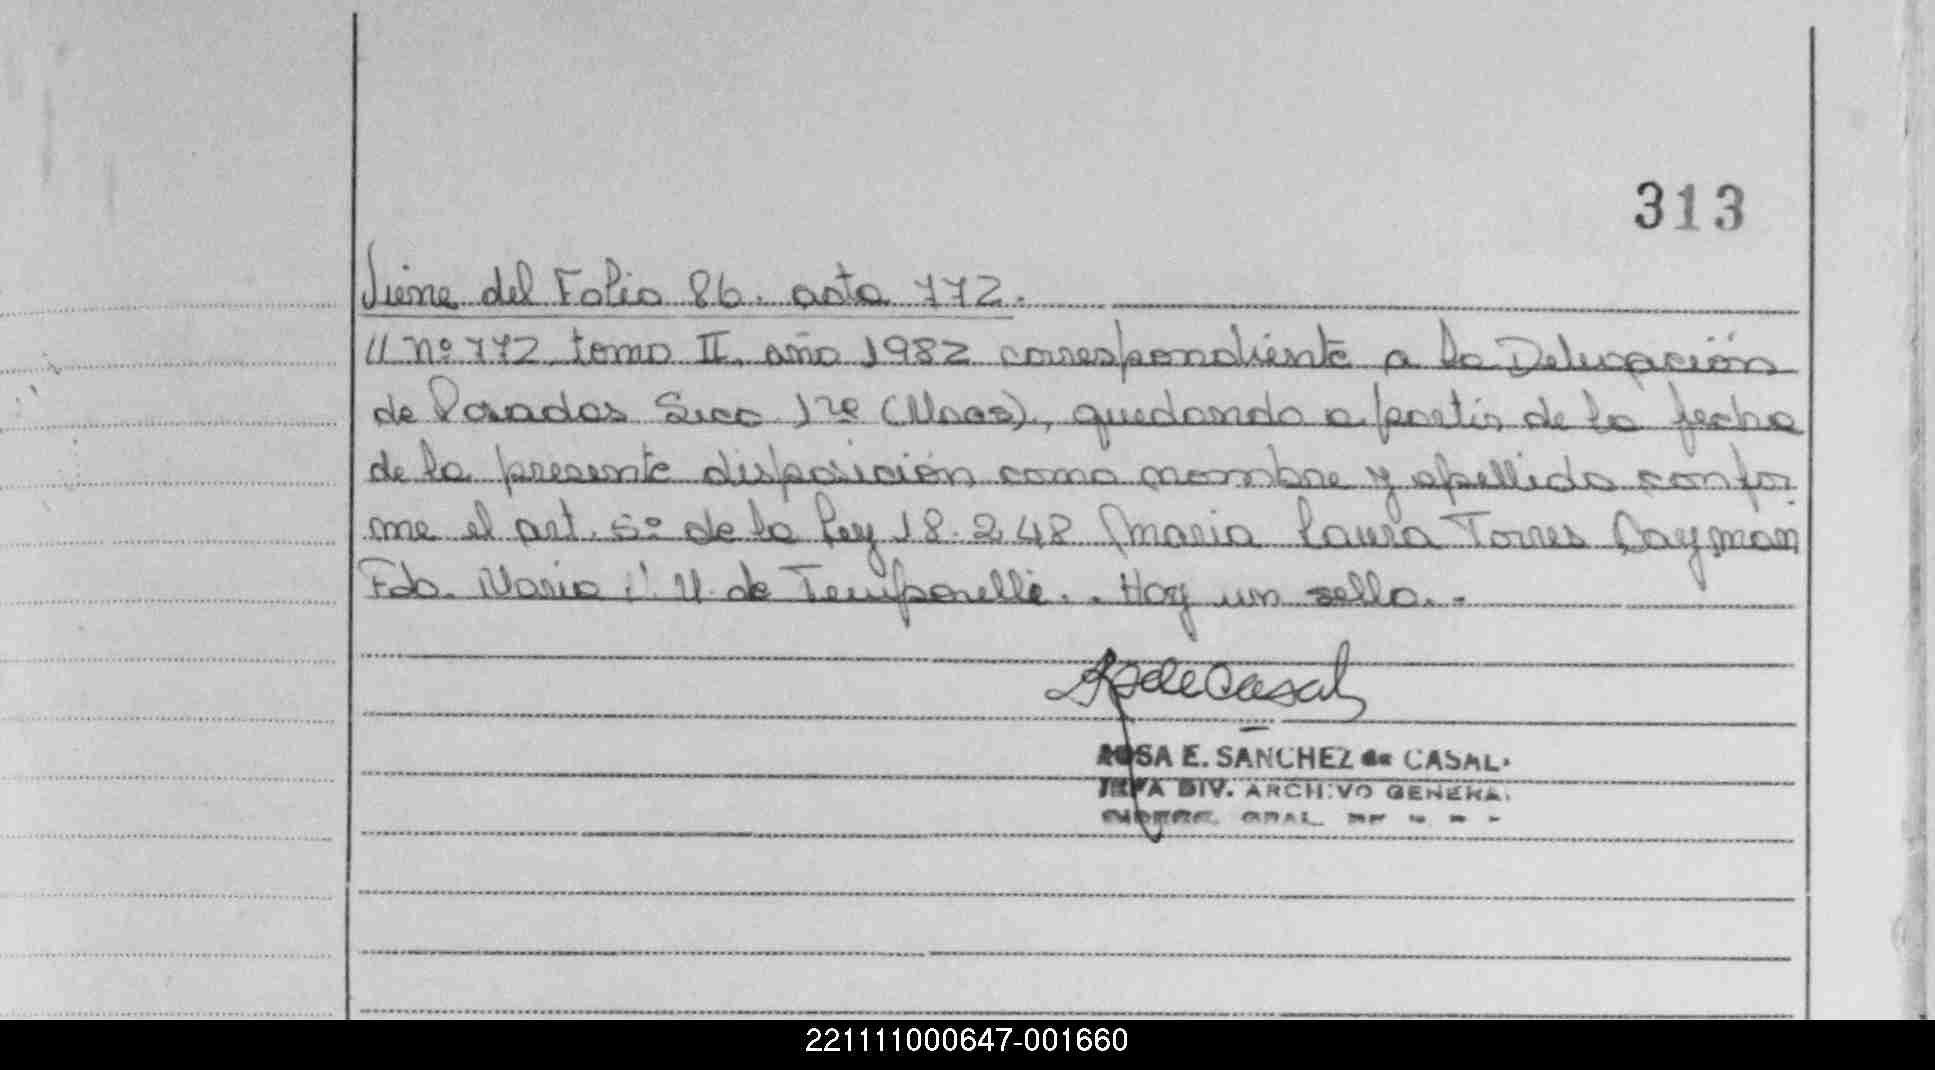 313
Viene del Folio 86. acta 772.
// nº 772, tomo II, año 1982 correspondiente a la Delegación
de Posadas Secc 1ra (Mnes), quedando a partir de la fecha
de la presente disposición como nombre y apellido confor
me el art. 5º de la Ley 18.248 (Maria Laura Torres Cayman
Fdo. Maria V. de Temporelli.. Hay un sello..
RSdeCasal
ROSA E. SANCHEZ de CASAL
JEFA DIV. ARCHIVO GENERAL
GRAL. DE
221111000647-001660